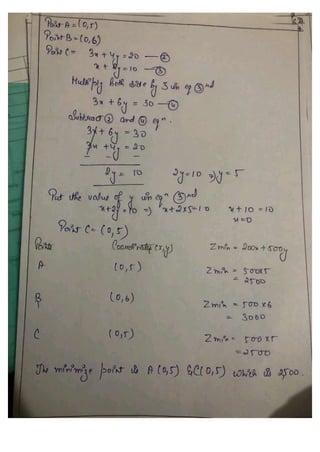 Point A = (0,5)
Point B = (0,6)
Point C = 3x + 4y = 20 — ②
x + 2y = 10 — ③
Multiply both side by 3 in eq ③nd
3x + 6y = 30 — ④
Subtract ② and ④ eqn.
3x + 6y = 30
3x + 4y = 20
- - -
2y = 10 2y = 10 ⇒ y = 5
Put the value of y in eqn ③nd
x + 2y = 10 ⇒ x + 2x5 = 10 x + 10 = 10
x = 0
Point C = (0,5)
Points Coordinates (x,y) Z min = 200x + 500y
A (0,5) Z min = 500x5
= 2500
B (0,6) Z min = 500 x6
= 3000
C (0,5) Z min = 500x5
= 2500
The minimize point is A (0,5) & C(0,5) which is 2,500.